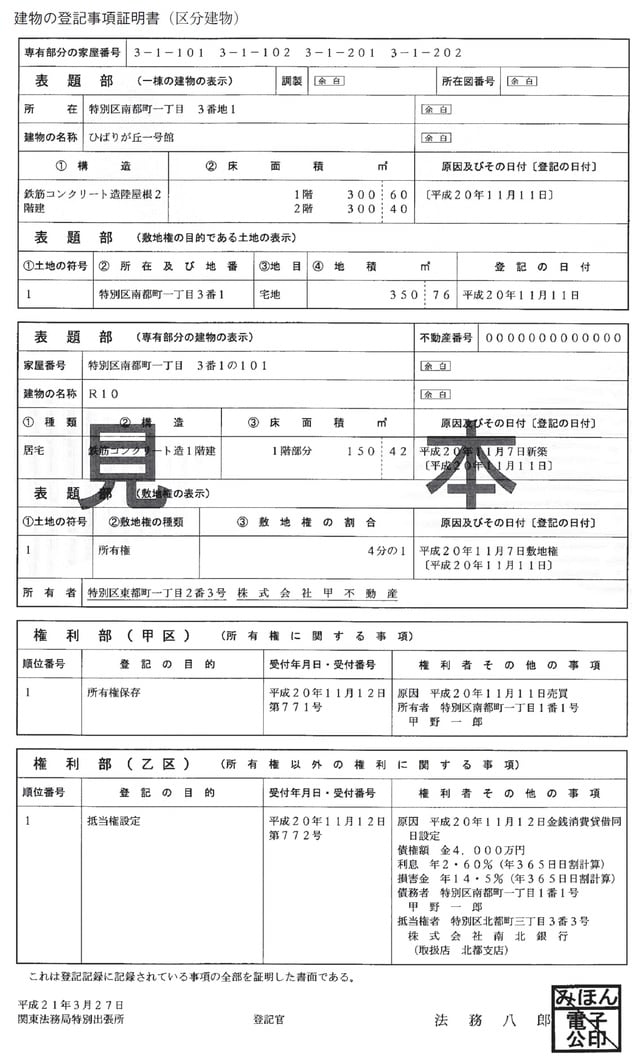 建物の登記事項証明書（区分建物）
専有部分の家屋番号 ３－１－１０１ ３－１－１０２ ３－１－２０１ ３－１－２０２
表題部 （一棟の建物の表示） 調製 余白 所在図番号 余白
所在 特別区南都町一丁目 ３番地１ 余白
建物の名称 ひばりが丘一号館 余白
①構造 ②床面積 ㎡ 原因及びその日付〔登記の日付〕
鉄筋コンクリート造陸屋根２ １階 ３００ ６０ 〔平成２０年１１月１１日〕
階建 ２階 ３００ ４０
表題部 （敷地権の目的である土地の表示）
①土地の符号 ②所在及び地番 ③地目 ④地積 ㎡ 登記の日付
１ 特別区南都町一丁目３番１ 宅地 ３５０ ７６ 平成２０年１１月１１日
表題部 （専有部分の建物の表示） 不動産番号 ００００００００００００００
家屋番号 特別区南都町一丁目 ３番１の１０１ 余白
建物の名称 Ｒ１０ 余白
①種類 ②構造 ③床面積 ㎡ 原因及びその日付〔登記の日付〕
居宅 鉄筋コンクリート造１階建 １階部分 １５０ ４２ 平成２０年１１月７日新築
〔平成２０年１１月１１日〕
見本
表題部 （敷地権の表示）
①土地の符号 ②敷地権の種類 ③敷地権の割合 原因及びその日付〔登記の日付〕
１ 所有権 ４分の１ 平成２０年１１月７日敷地権
〔平成２０年１１月１１日〕
所有者 特別区東都町一丁目２番３号 株式会社甲不動産
権利部（甲区） （所有権に関する事項）
順位番号 登記の目的 受付年月日・受付番号 権利者その他の事項
１ 所有権保存 平成２０年１１月１２日 原因 平成２０年１１月１１日売買
第７７１号 所有者 特別区南都町一丁目１番１号
甲野一郎
権利部（乙区） （所有権以外の権利に関する事項）
順位番号 登記の目的 受付年月日・受付番号 権利者その他の事項
１ 抵当権設定 平成２０年１１月１２日 原因 平成２０年１１月１２日金銭消費貸借同
第７７２号 日設定
債権額 金４，０００万円
利息 年２・６０％（年３６５日日割計算）
損害金 年１４・５％（年３６５日日割計算）
債務者 特別区南都町一丁目１番１号
甲野一郎
抵当権者 特別区北都町三丁目３番３号
株式会社南北銀行
（取扱店 北都支店）
これは登記記録に記録されている事項の全部を証明した書面である。
平成２１年３月２７日
関東法務局特別出張所 登記官 法務八郎
みほん
電子
公印